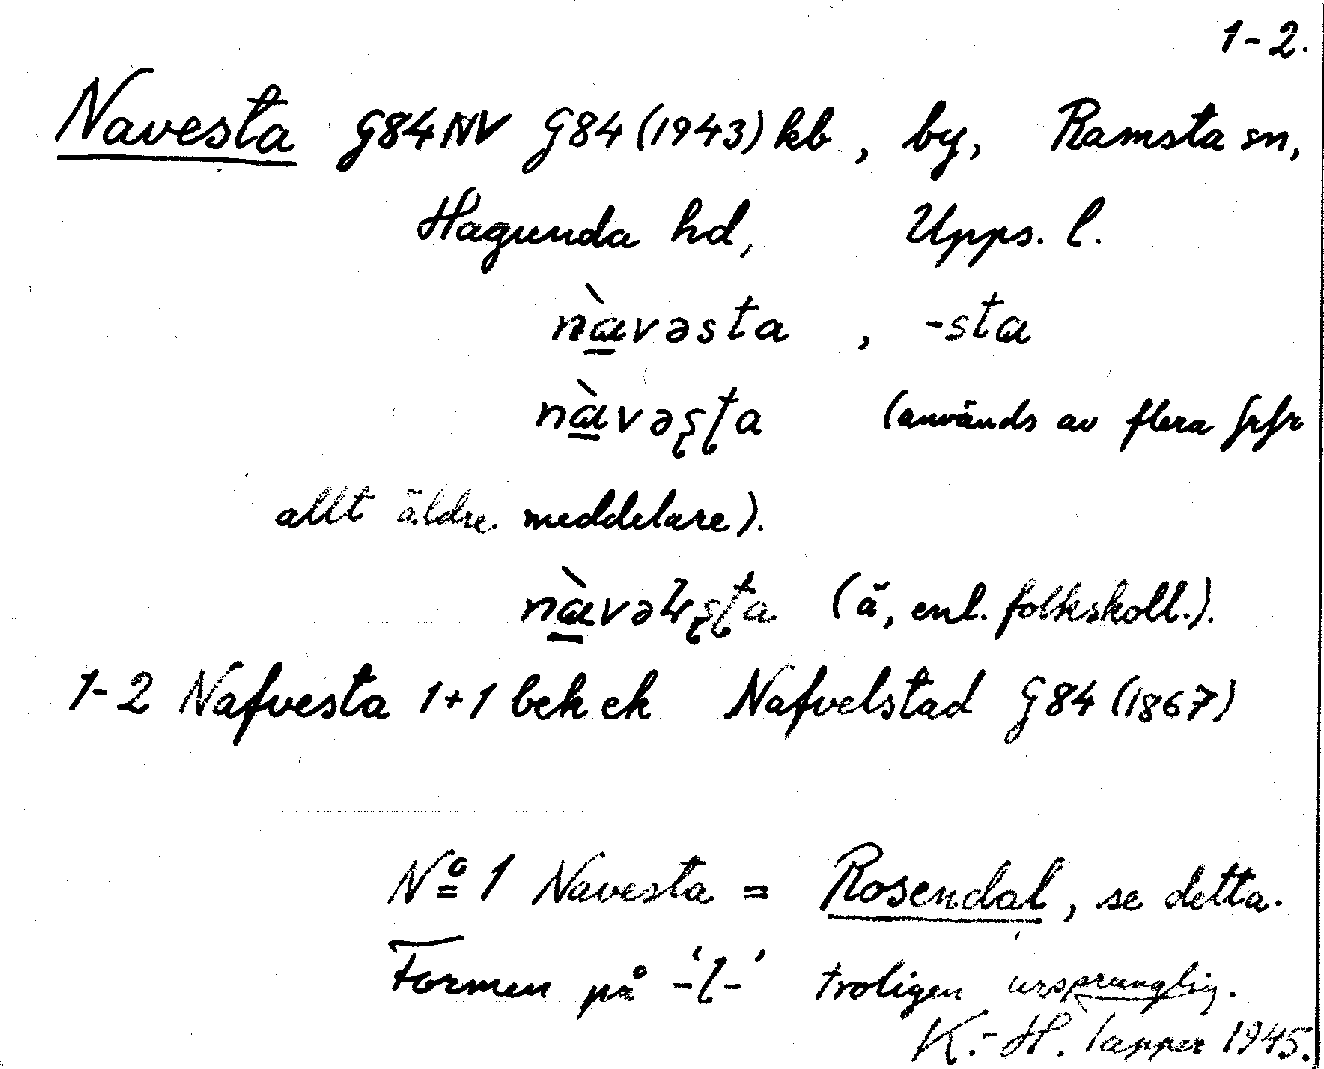 1-2.
Navesta G84NV G84 (1943) kb, by, Ramsta sn,
Hagunda hd, Upps. l.
nàvəsta, -sta
nàvəʂʈa (används av flera
allt äldre meddelare).
nàvəɽʂʈa (ä, enl. folkskoll.).
1-2 Nafvesta 1+1 bek ek Nafvelstad G84 (1867)
Nº 1 Navesta = Rosendal, se detta.
Formen på '-l-' troligen ursprunglig.
K.-H. Tapper 1945.